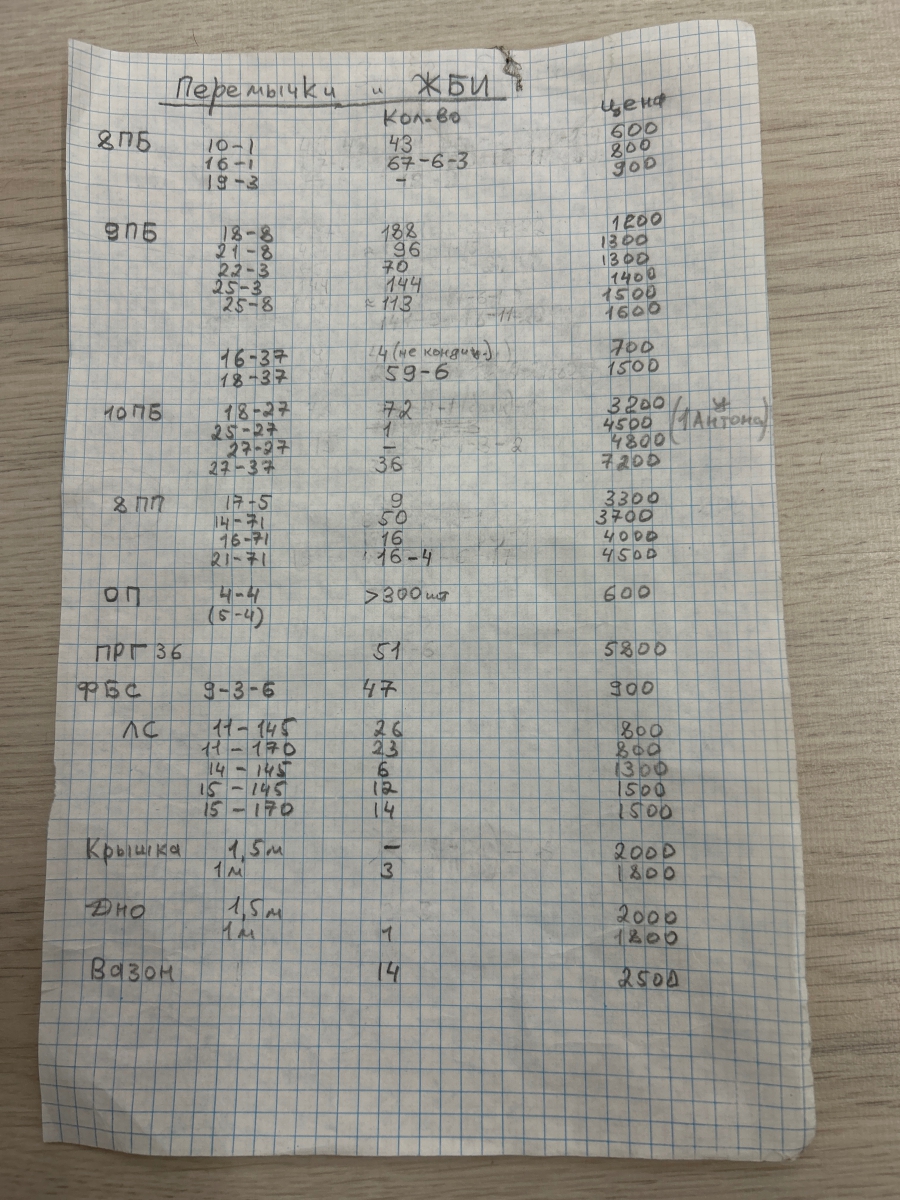 Перемычки и ЖБИ
Кол-во цена
8ПБ 10-1 43 600
16-1 67-6-3 800
19-3 - 900
9ПБ 18-8 188 1200
21-8 96 1300
22-3 70 1300
25-3 144 1400
25-8 ≈113 1500
-11- 1600
16-37 4 (не кондиц.) 700
18-37 59-6 1500
10ПБ 18-27 72 3200
25-27 1 4500 (1 Антона)
27-27 - 4800
27-37 36 7200
8ПП 17-5 9 3300
14-71 50 3700
16-71 16 4000
21-71 16-4 4500
ОП 4-4 >300шт 600
(5-4)
ПРГ 36 51 5800
ФБС 9-3-6 47 900
ЛС 11-145 26 800
11-170 23 800
14-145 6 1300
15-145 12 1500
15-170 14 1500
Крышка 1,5м - 2000
1м 3 1800
Дно 1,5м 2000
1м 1 1800
Вазон 14 2500